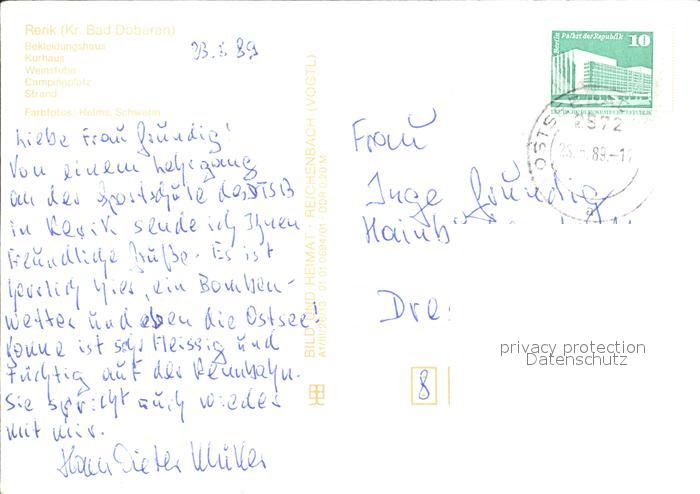 Rerik (Kr. Bad Doberan)
Bekleidungshaus
Kurhaus
Weinstube
Campingplatz
Strand
Farbfotos: Helms, Schwerin
23.5.89
Liebe Frau Gründig!
Von einem Lehrgang
an der Sportschule des DTSB
in Rerik sende ich Ihnen
freundliche Grüße. Es ist
herrlich hier, ein Bomben-
wetter und eben die Ostsee!
ist sehr fleissig und
tüchtig auf der Rennbahn.
Sie spricht auch wieder
mit mir.
Hans Dieter
BILD UND HEIMAT · REICHENBACH (VOGTL)
Berlin Palast der Republik
10
DEUTSCHE DEMOKRATISCHE REPUBLIK
OSTS
89.-17
Frau
Inge Gründig
Hainb
Dre
8
privacy protection
Datenschutz